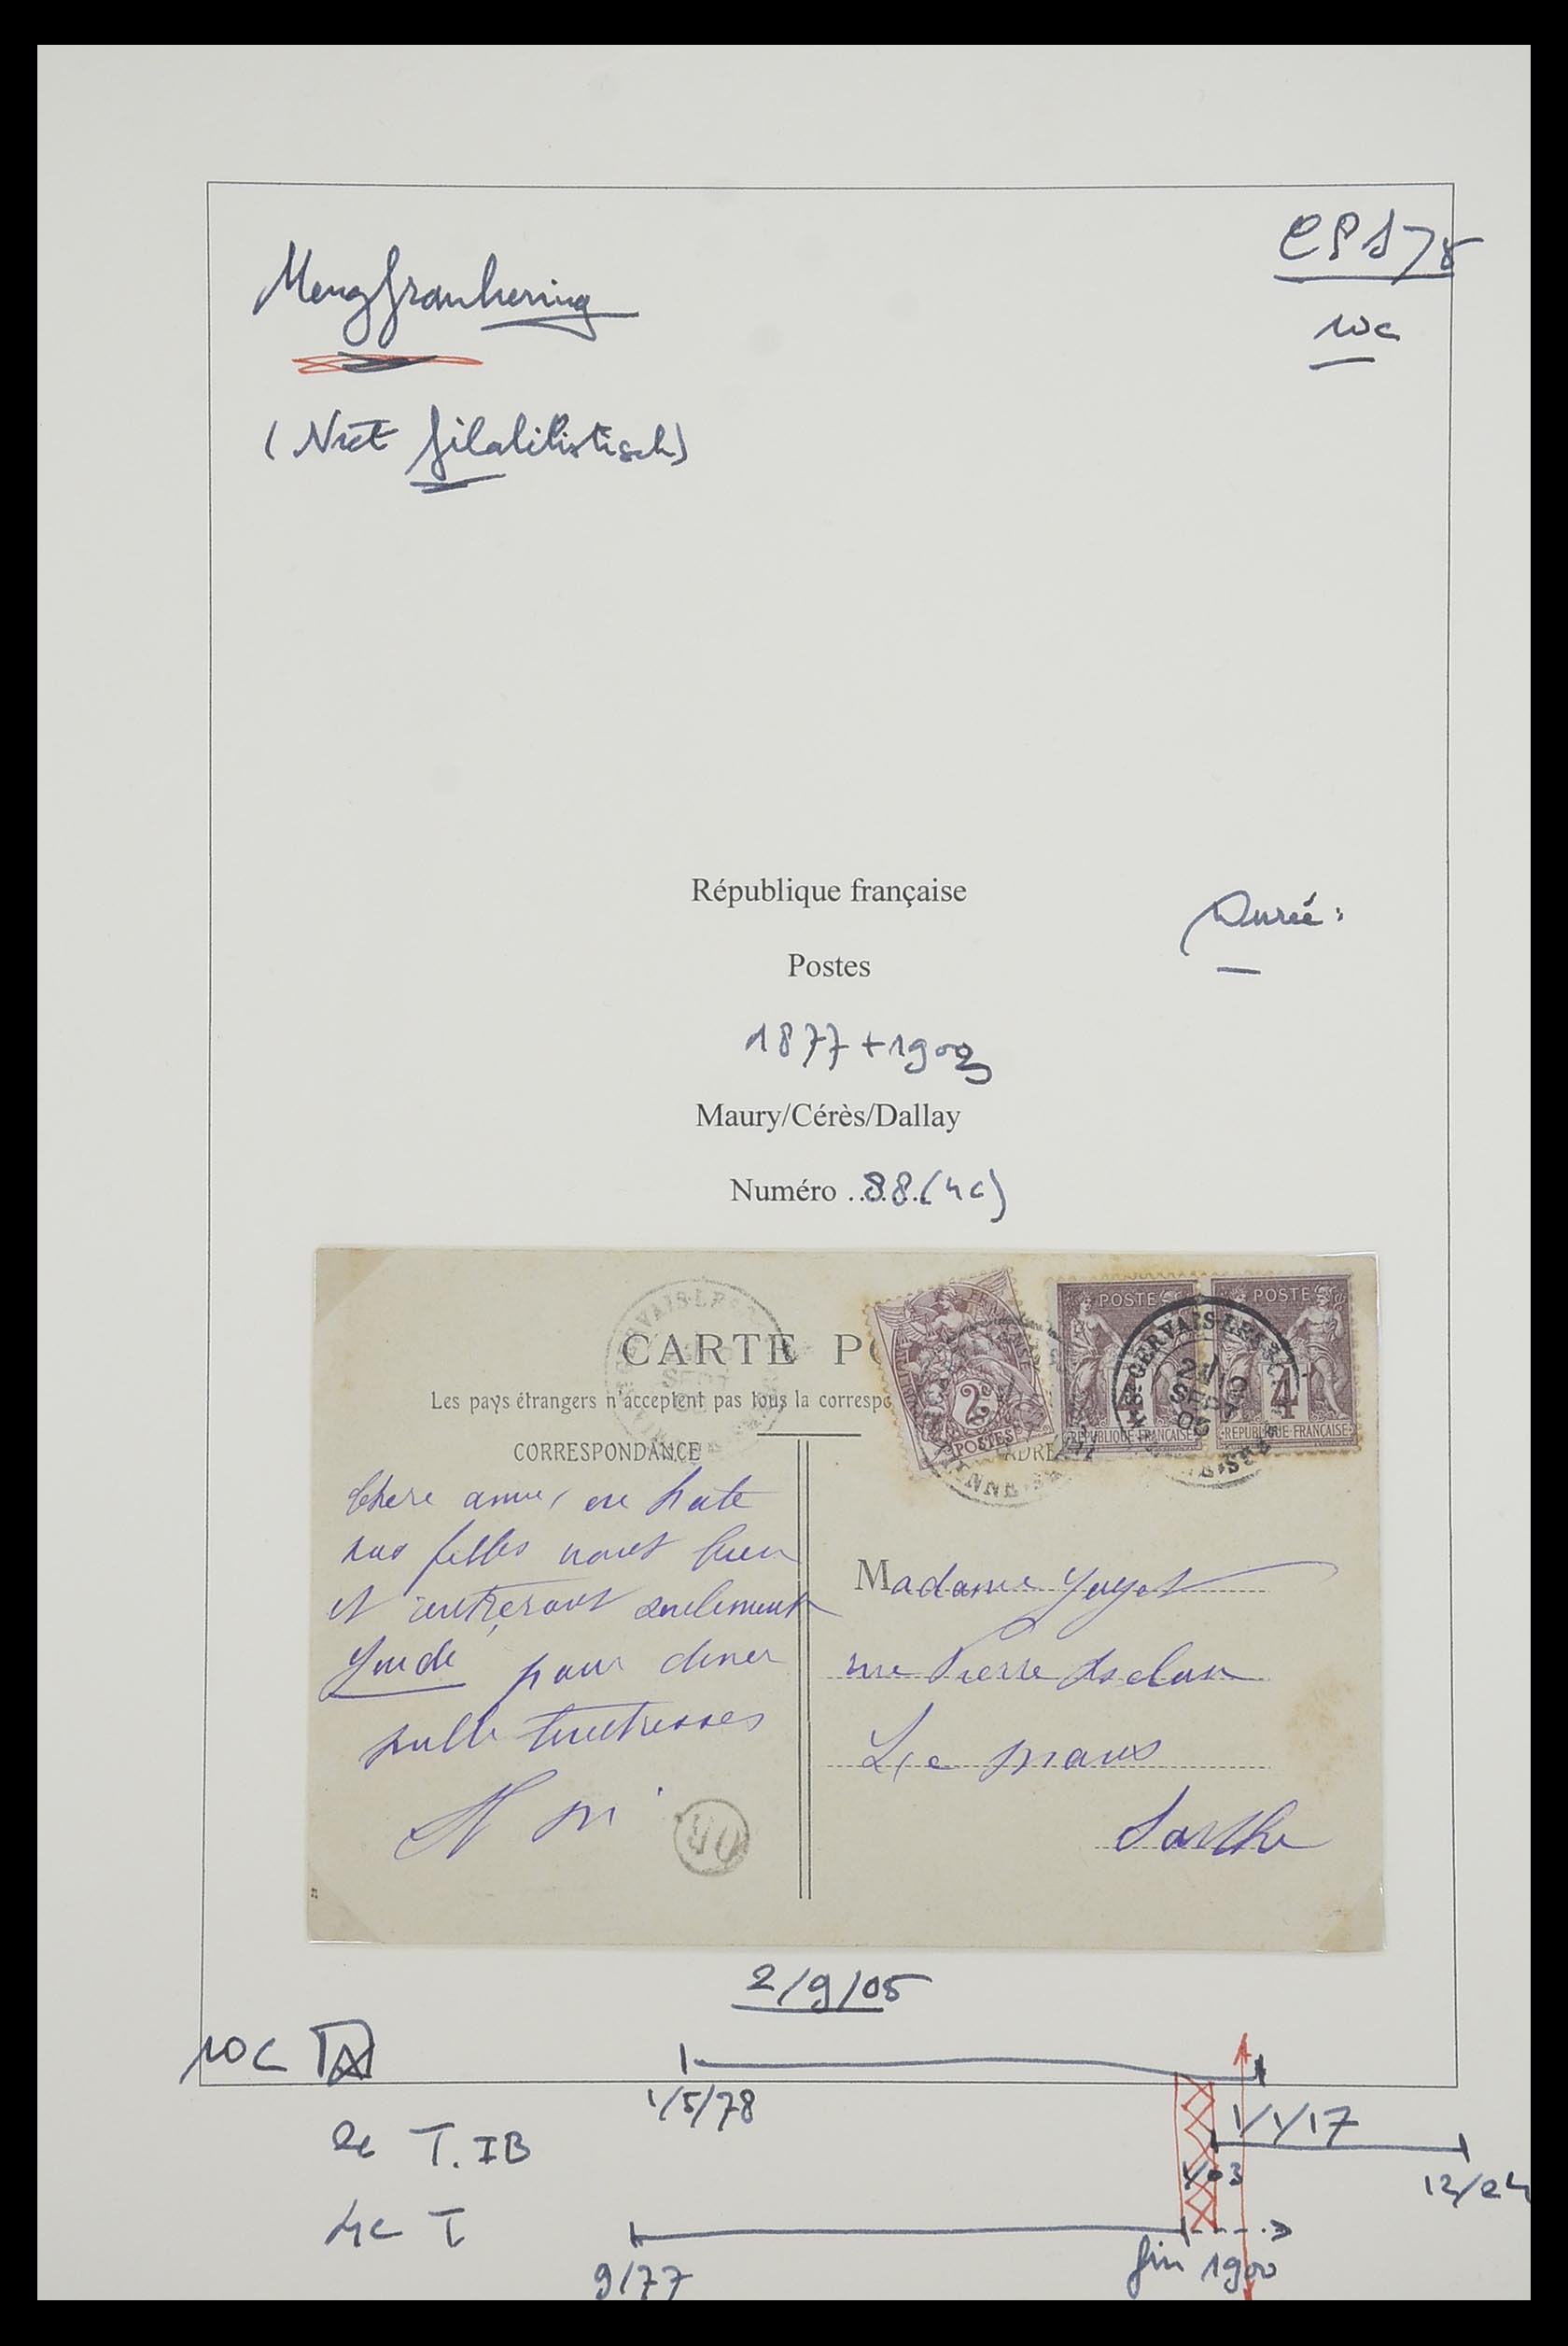 CPS 78
10c
Mengfrankering
(Niet filatilistisch)
République française
Durée:
Postes
1877 + 1903
Maury/Cérès/Dallay
Numéro ..88.(4c)
CARTE PO
Les pays étrangers n'acceptent pas tous la correspo
CORRESPONDANCE
ADRE
2c
POSTES
POSTE
4
REPUBLIQUE FRANÇAISE
POSTE
4
REPUBLIQUE FRANÇAISE
ST GERVAIS-LES
2
SEPT
05
Chere amie, en hate
nos filles vont bien
et rentreront seulement
pour diner
mille tendresses
40
Madame
rue Pierre
Le Mans
Sarthe
2/9/05
10c
1/5/78
1/1/17
2c T. IB
1/03
12/24
4c T
9/77
fin 1900